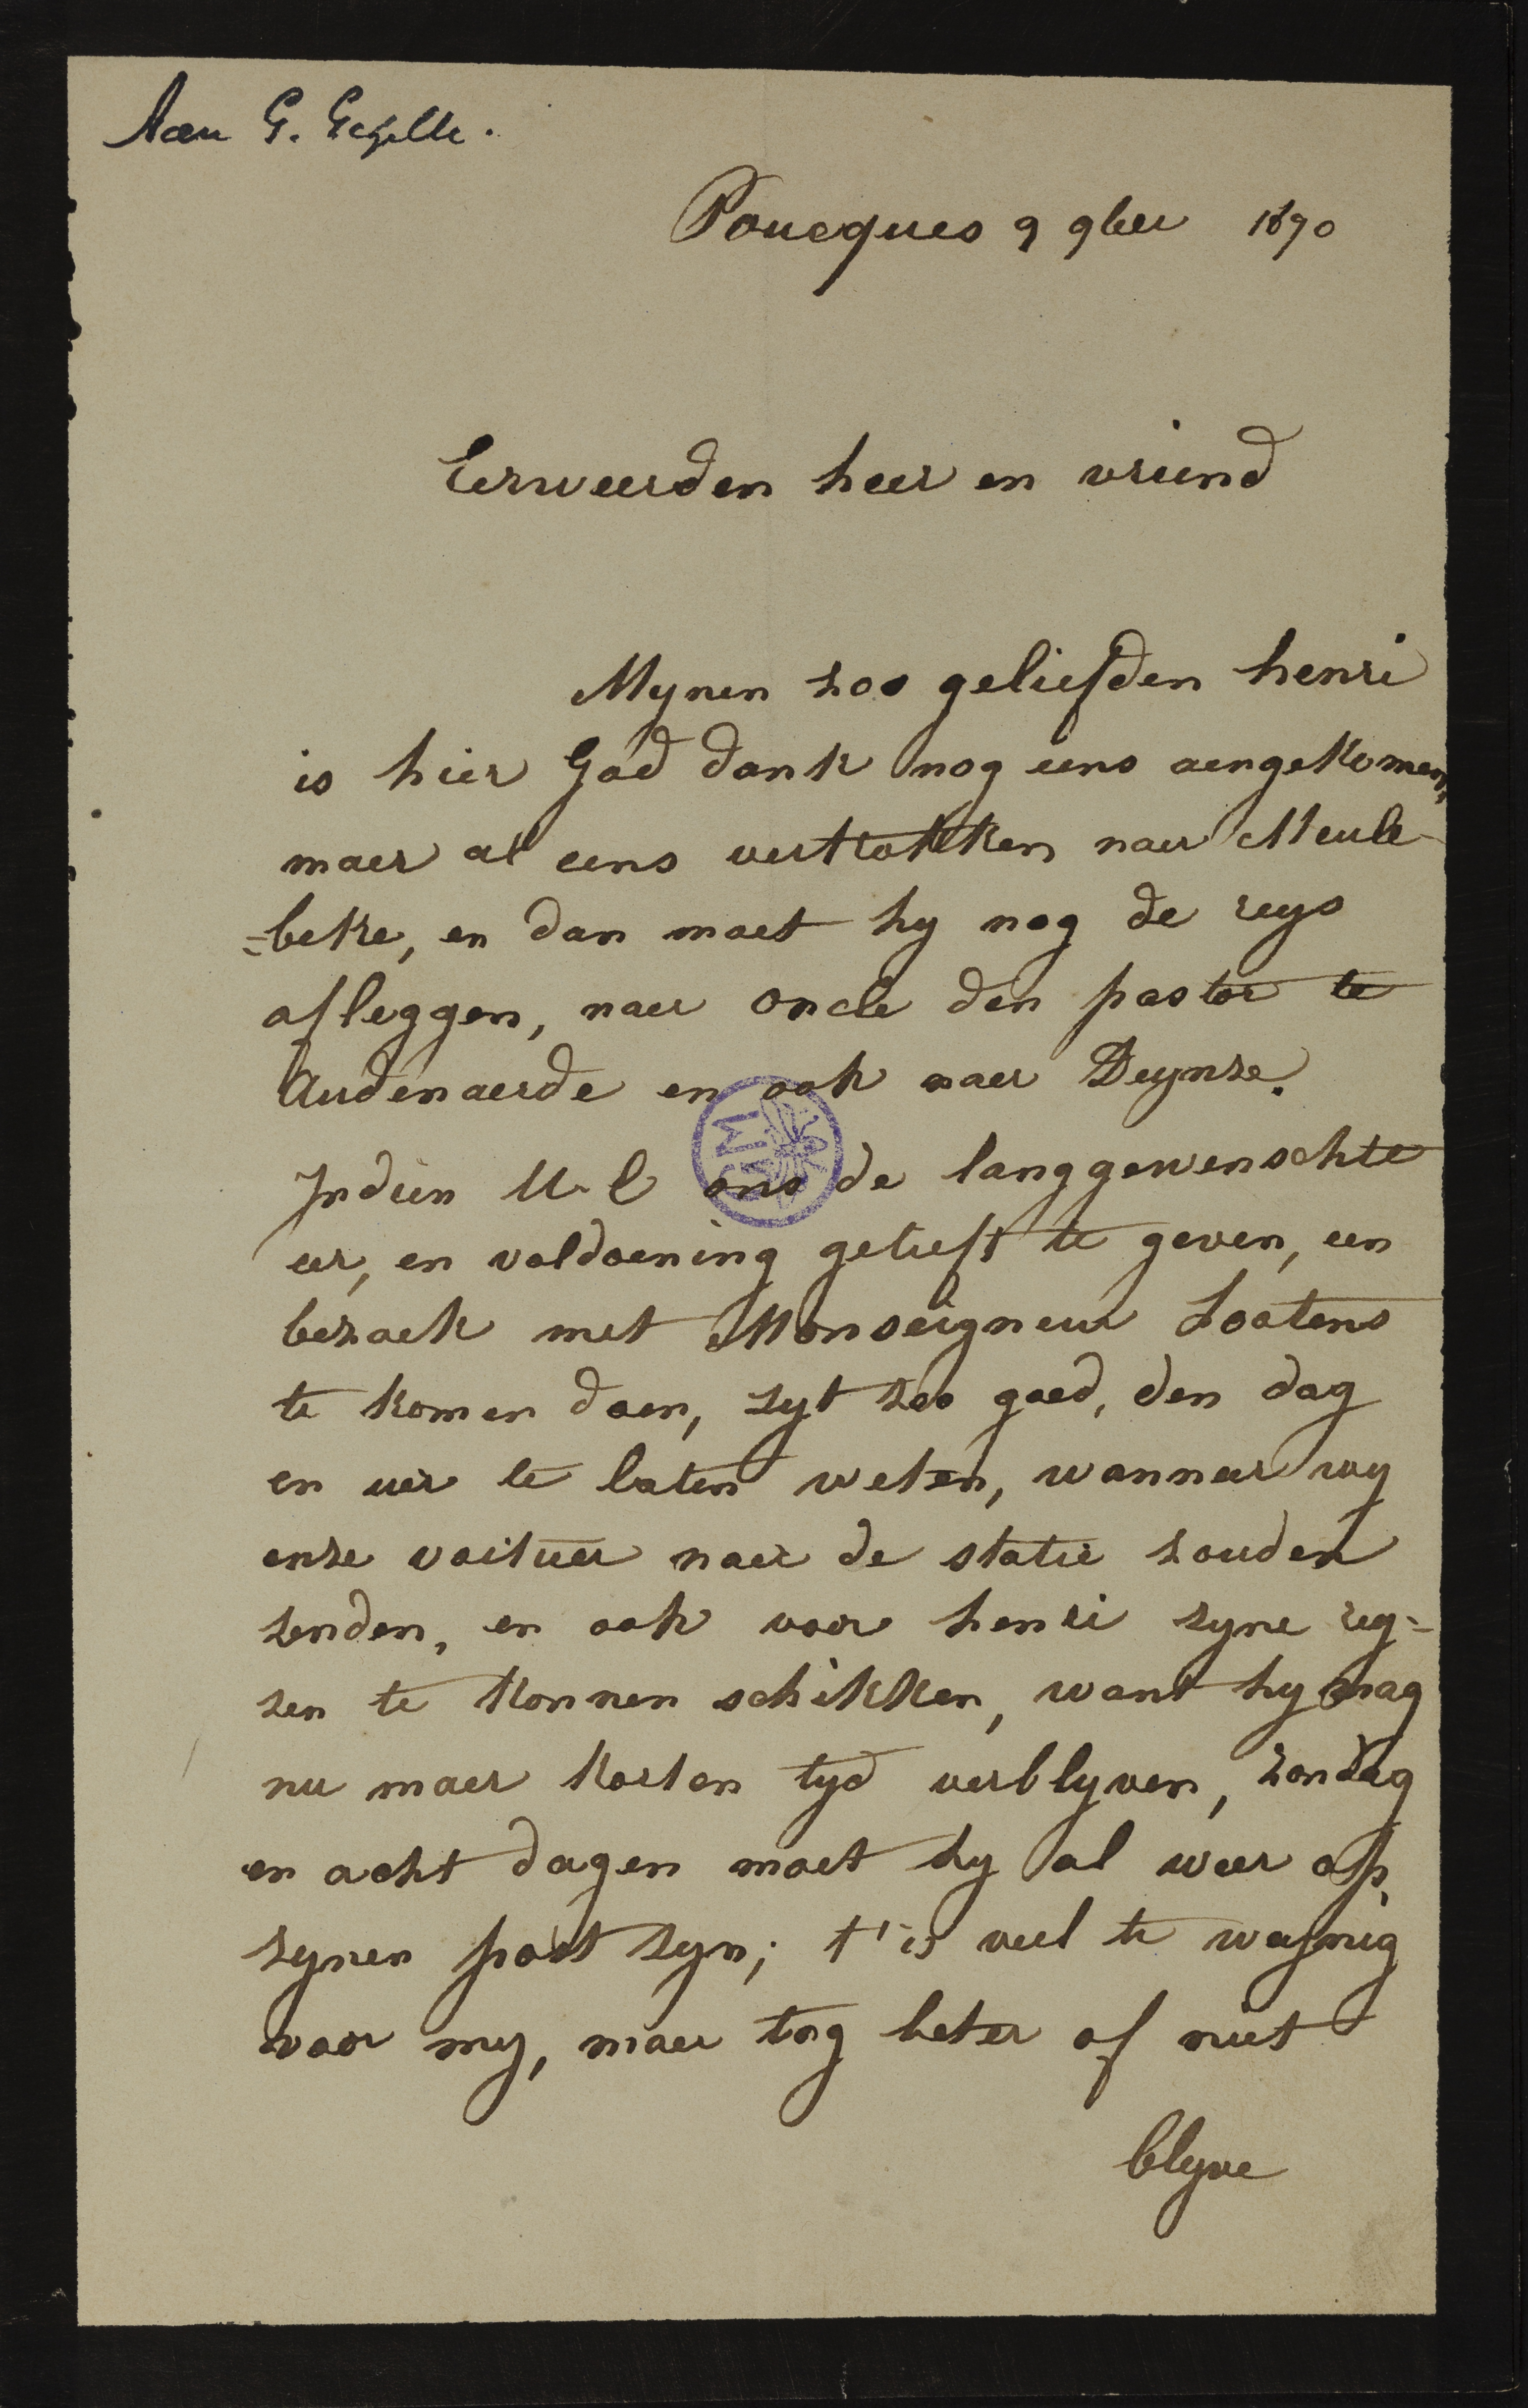 Aan G. Gezelle.
Poucques 9 9ber 1890
Eerweerden heer en vriend
Mynen zoo geliefden henri
is hier God dank nog eens aengekomen,
maer al eens vertrokken naer Meule-
=beke, en dan moet hy nog de reys
afleggen, naer oncle den pastor te
Audenaerde en ook naer Deynze.
Indien U.E ons de langgewenschte
eer, en voldoening gelieft te geven, een
bezoek met Monseigneur Lootens
te komen doen, zyt zoo goed, den dag
en uer te laten weten, wanneer wy
onze voituer naer de statie zouden
zenden, en ook voor henri zyne rey=
zen te konnen schikken, want hy mag
nu maer korten tyd verblyven, zondag
en acht dagen moet hy al weer op
zynen post zyn; t'is veel te wejnig
voor my, maer tog beter of niet
blyve